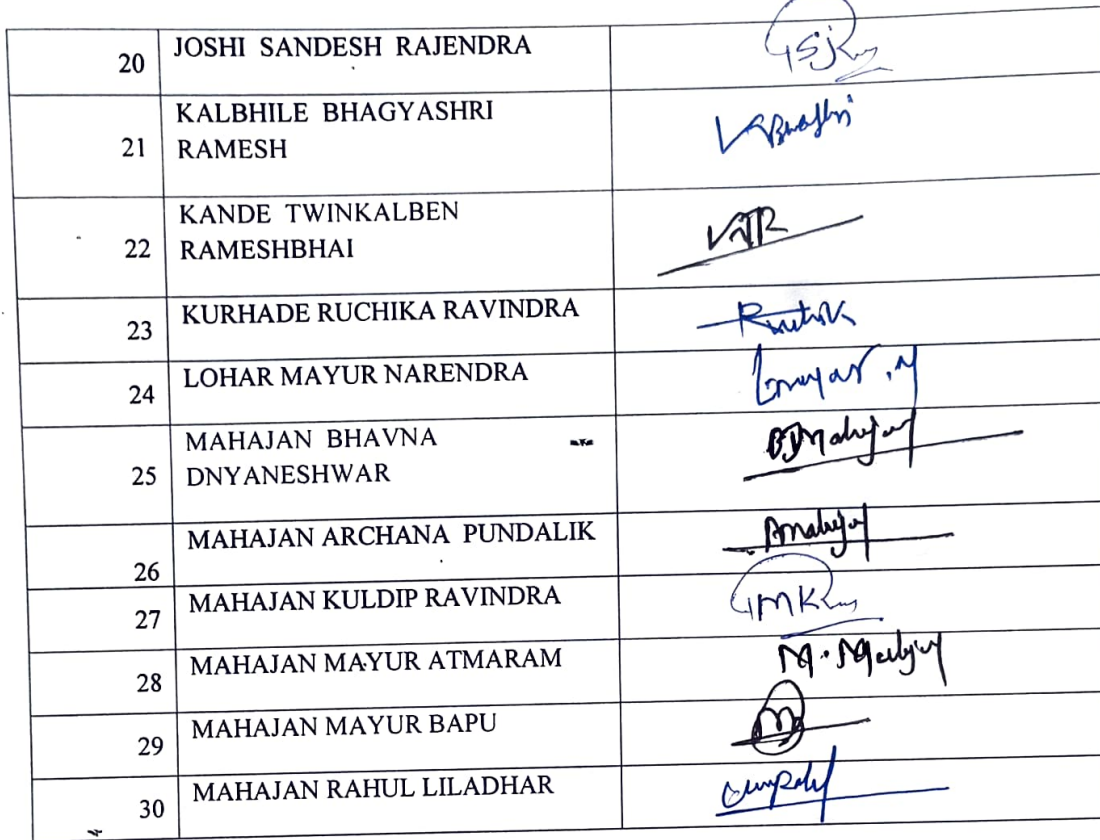 20 JOSHI SANDESH RAJENDRA
KALBHILE BHAGYASHRI
21 RAMESH
KANDE TWINKALBEN
22 RAMESHBHAI
23 KURHADE RUCHIKA RAVINDRA
24 LOHAR MAYUR NARENDRA
MAHAJAN BHAVNA
25 DNYANESHWAR
26 MAHAJAN ARCHANA PUNDALIK
27 MAHAJAN KULDIP RAVINDRA
28 MAHAJAN MAYUR ATMARAM
29 MAHAJAN MAYUR BAPU
30 MAHAJAN RAHUL LILADHAR